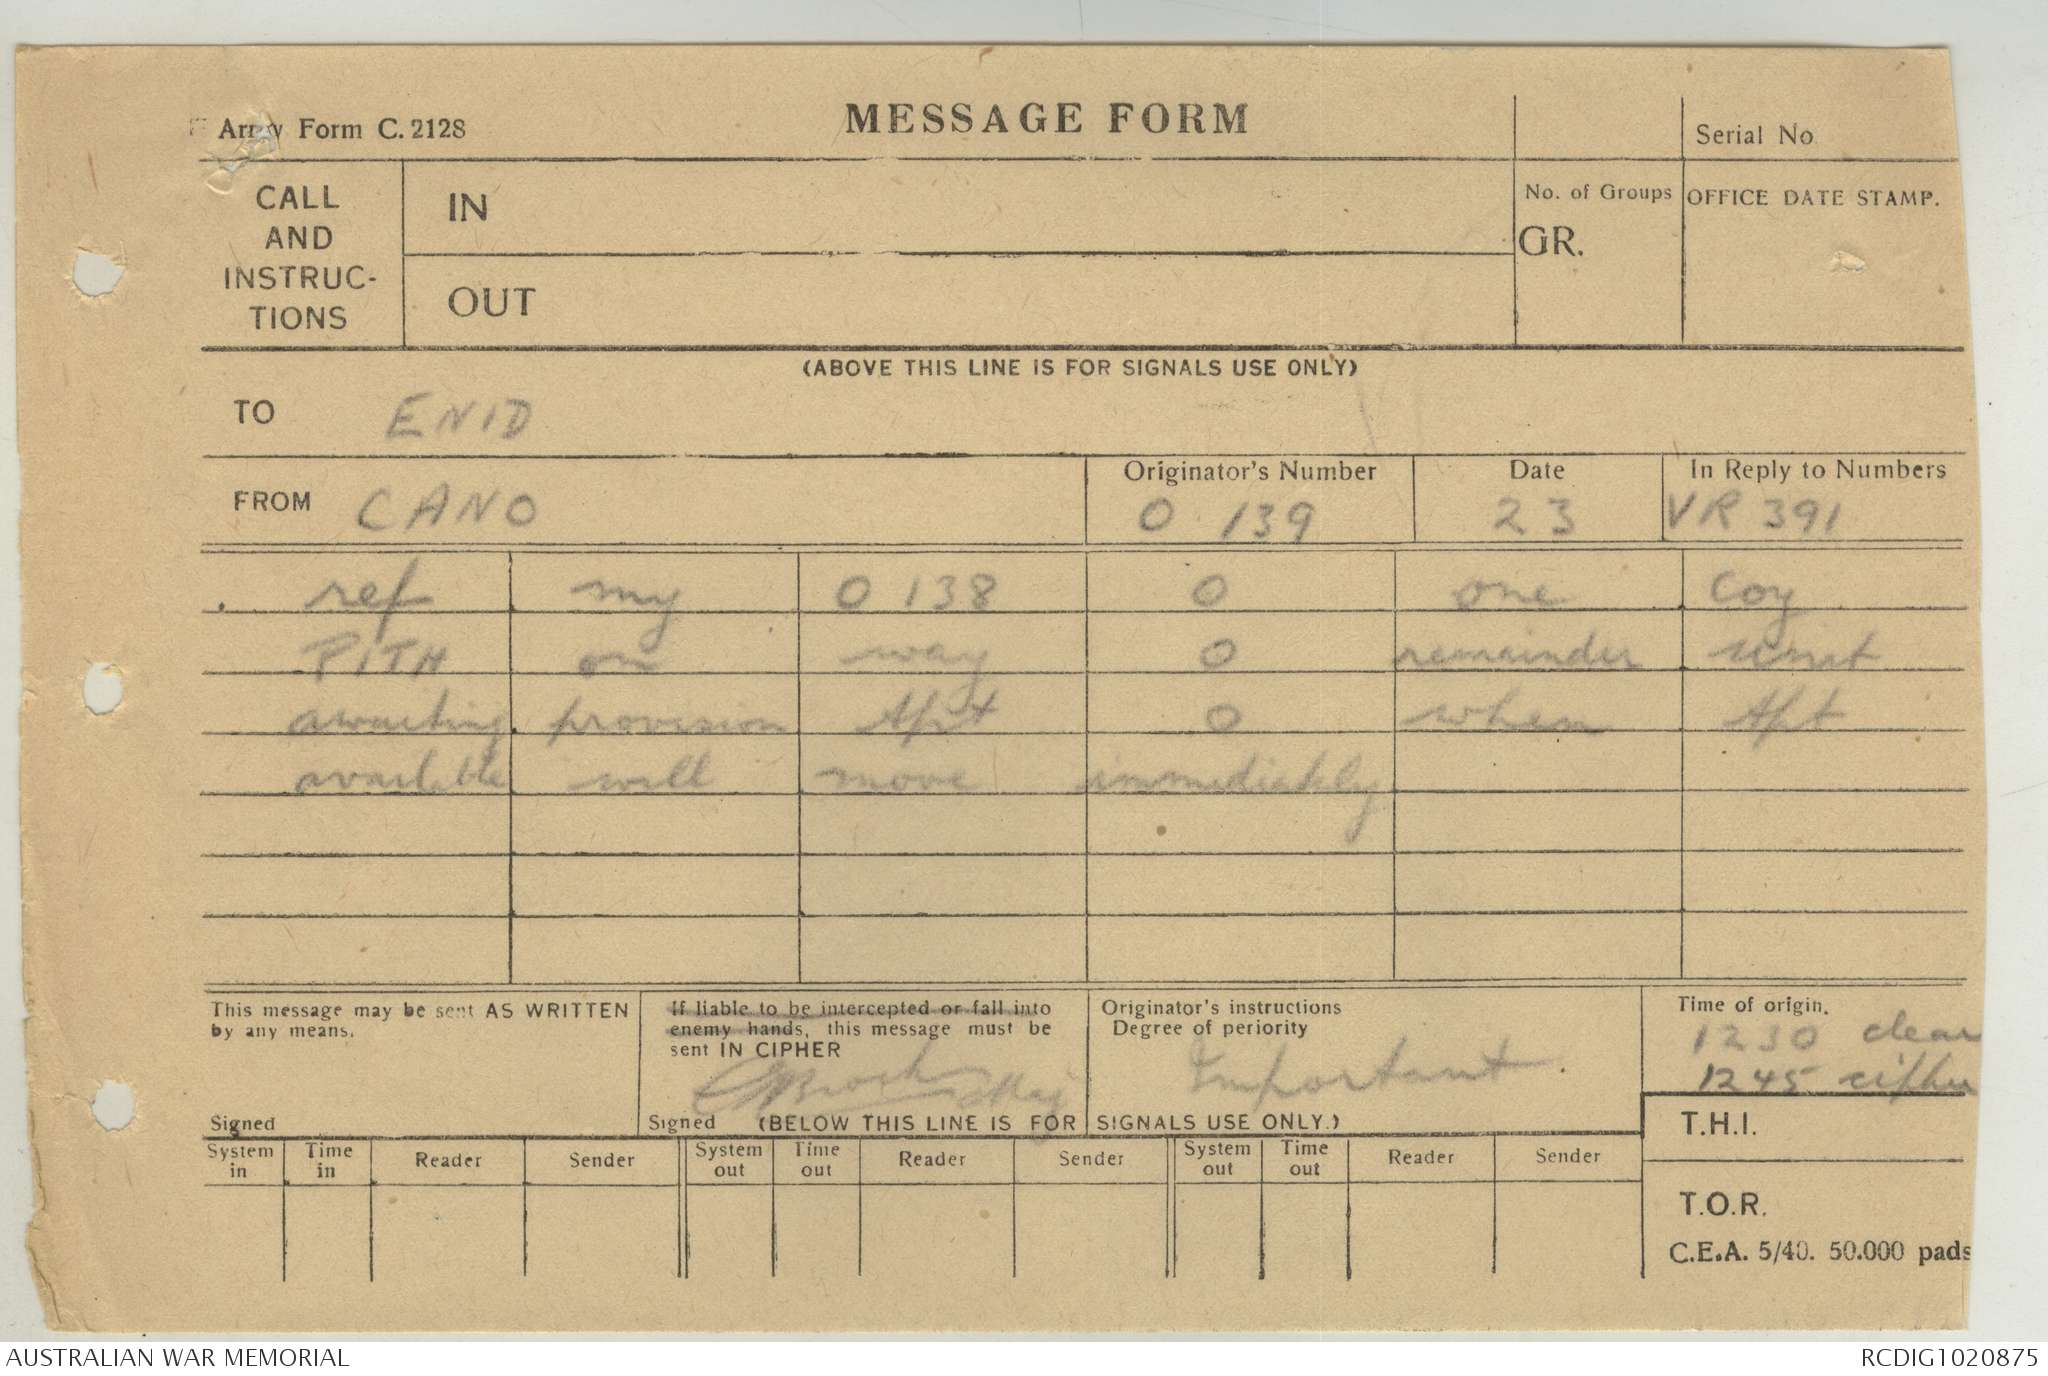 Army Form C. 2128
MESSAGE FORM
Serial No
CALL
AND
INSTRUC-
TIONS
IN
OUT
No. of Groups
GR.
OFFICE DATE STAMP.
(ABOVE THIS LINE IS FOR SIGNALS USE ONLY)
TO ENID
FROM CANO
Originator's Number
O 139
Date
23
In Reply to Numbers
VR 391
ref my O 138 O one coy
PITH on way O remainder unit
awaiting provision tpt O when tpt
available will move immediately
This message may be sent AS WRITTEN
by any means.
Signed
If liable to be intercepted or fall into
enemy hands, this message must be
sent IN CIPHER
Maj
Signed
Originator's instructions
Degree of periority
Important.
Time of origin.
1230 clear
1245 cipher
(BELOW THIS LINE IS FOR SIGNALS USE ONLY.)
T.H.I.
System in Time in Reader Sender System out Time out Reader Sender System out Time out Reader Sender
T.O.R.
C.E.A. 5/40. 50.000 pads
AUSTRALIAN WAR MEMORIAL
RCDIG1020875